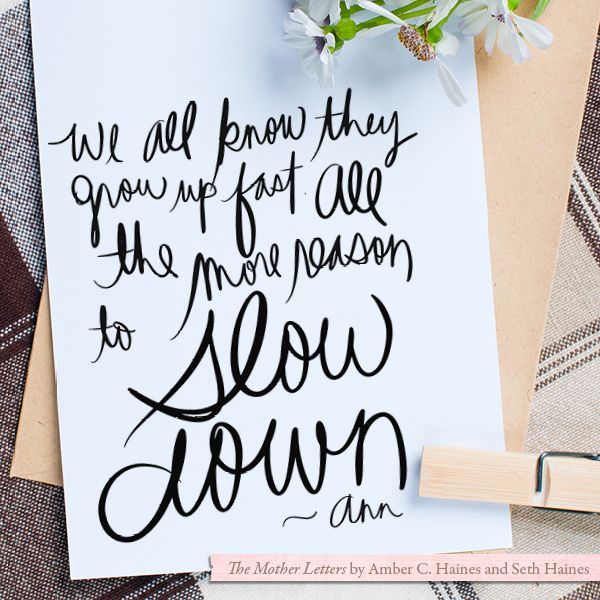 we all know they
grow up fast. All
the more reason
to slow
down
~ ann
The Mother Letters by Amber C. Haines and Seth Haines